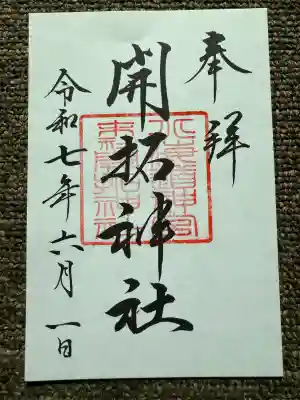 奉拝
開拓神社
令和七年六月一日